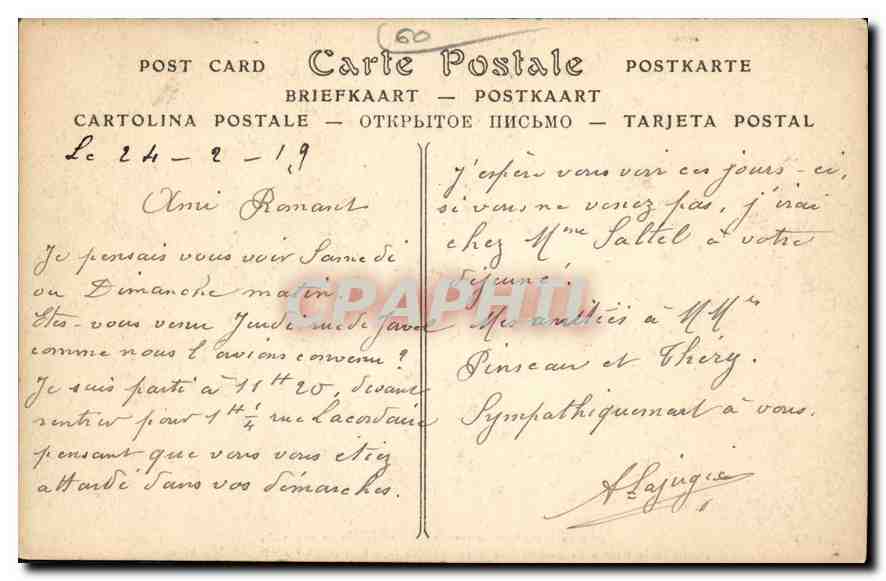 60
POST CARD Carte Postale POSTKARTE
BRIEFKAART — POSTKAART
CARTOLINA POSTALE — ОТКРЫТОЕ ПИСЬМО — TARJETA POSTAL
Le 24 - 2 - 19
Ami Romant
Je pensais vous voir Samedi
ou Dimanche matin.
Etes-vous venu Jeudi rue de Javel
comme nous l'avions convenu ?
Je suis parti à 11H20, devant
rentrer pour 1H1/4 rue Lacordaire
pensant que vous vous étiez
attardé dans vos démarches.
J'espère vous voir ces jours-ci,
si vous ne venez pas, j'irai
chez Mme Saltel à votre
déjeuné.
Mes amitiés à MMrs
Pinseau et Théry.
Sympathiquement à vous.
A Lajugie
CPAPHIL